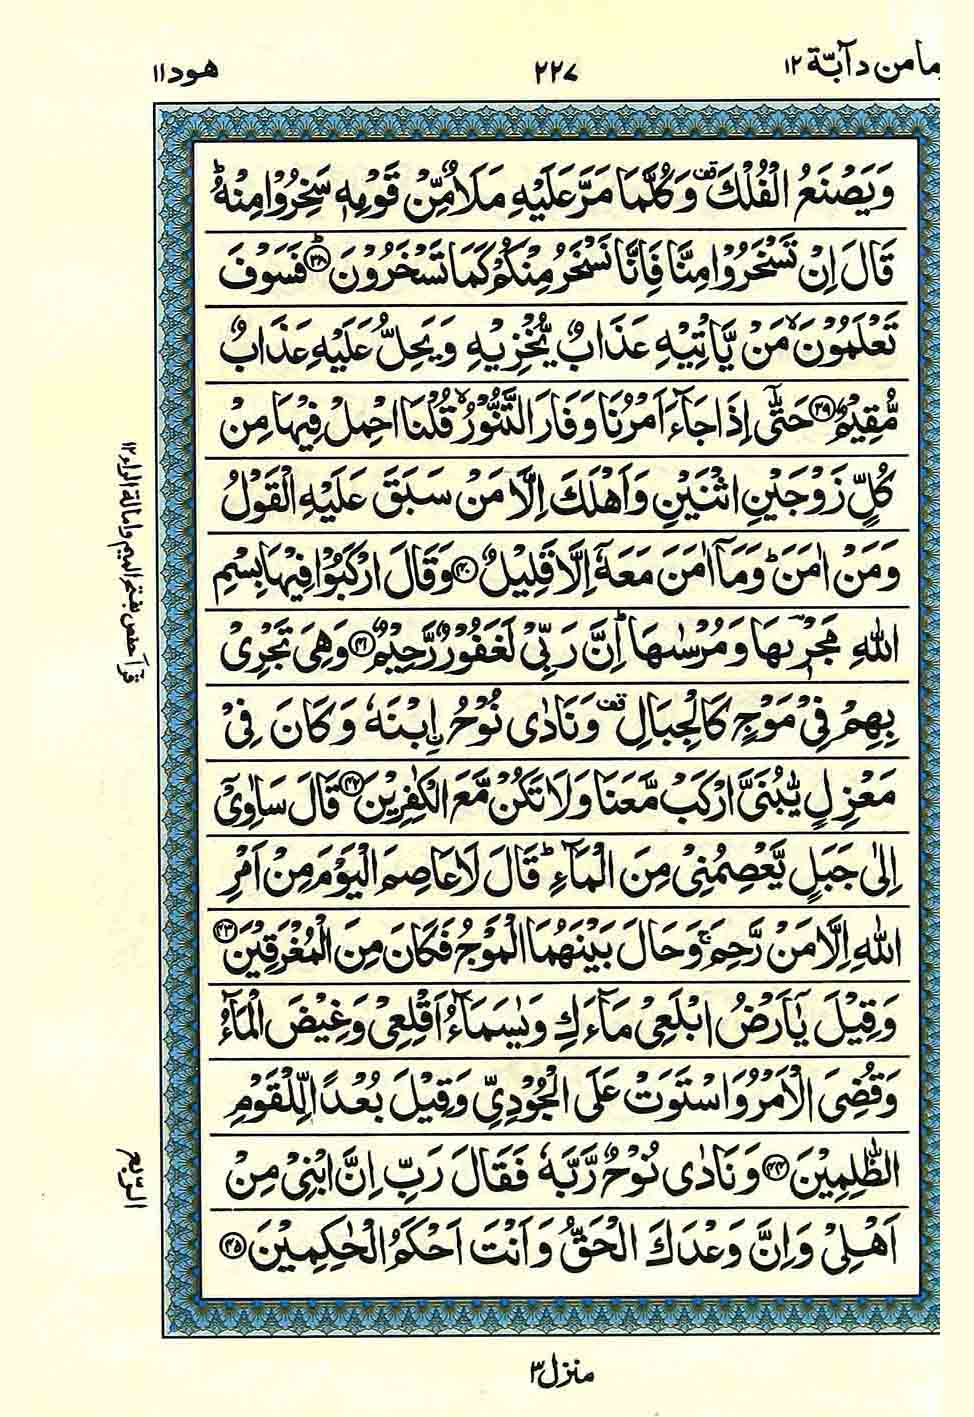 ومامن دآبّة ١٢
٢٢٧
هود ١١
وَيَصْنَعُ الْفُلْكَ ۫ وَكُلَّمَا مَرَّ عَلَيْهِ مَلَاٌ مِّنْ قَوْمِهٖ سَخِرُوْا مِنْهُ ؕ
قَالَ اِنْ تَسْخَرُوْا مِنَّا فَاِنَّا نَسْخَرُ مِنْكُمْ كَمَا تَسْخَرُوْنَ ؕ ﴿۳۸﴾ فَسَوْفَ
تَعْلَمُوْنَ ۙ مَنْ يَّاْتِيْهِ عَذَابٌ يُّخْزِيْهِ وَيَحِلُّ عَلَيْهِ عَذَابٌ
مُّقِيْمٌ ﴿۳۹﴾ حَتّٰۤى اِذَا جَآءَ اَمْرُنَا وَفَارَ التَّنُّوْرُ ۙ قُلْنَا احْمِلْ فِيْهَا مِنْ
كُلٍّ زَوْجَيْنِ اثْنَيْنِ وَاَهْلَكَ اِلَّا مَنْ سَبَقَ عَلَيْهِ الْقَوْلُ
وَمَنْ اٰمَنَ ؕ وَمَاۤ اٰمَنَ مَعَهٗۤ اِلَّا قَلِيْلٌ ﴿۴۰﴾ وَقَالَ ارْكَبُوْا فِيْهَا بِسْمِ
اللّٰهِ مَجْرٖىهَا وَمُرْسٰىهَا ؕ اِنَّ رَبِّىْ لَغَفُوْرٌ رَّحِيْمٌ ﴿۴۱﴾ وَهِىَ تَجْرِىْ
بِهِمْ فِىْ مَوْجٍ كَالْجِبَالِ ۫ وَنَادٰى نُوْحُ ۨ ابْنَهٗ وَكَانَ فِىْ
مَعْزِلٍ يّٰبُنَىَّ ارْكَبْ مَّعَنَا وَلَا تَكُنْ مَّعَ الْكٰفِرِيْنَ ﴿۴۲﴾ قَالَ سَاٰوِىْۤ
اِلٰى جَبَلٍ يَّعْصِمُنِىْ مِنَ الْمَآءِ ؕ قَالَ لَا عَاصِمَ الْيَوْمَ مِنْ اَمْرِ
اللّٰهِ اِلَّا مَنْ رَّحِمَ ۚ وَحَالَ بَيْنَهُمَا الْمَوْجُ فَكَانَ مِنَ الْمُغْرَقِيْنَ ﴿۴۳﴾
وَقِيْلَ يٰۤاَرْضُ ابْلَعِىْ مَآءَكِ وَيٰسَمَآءُ اَقْلِعِىْ وَغِيْضَ الْمَآءُ
وَقُضِىَ الْاَمْرُ وَاسْتَوَتْ عَلَى الْجُوْدِىِّ وَقِيْلَ بُعْدًا لِّلْقَوْمِ
الظّٰلِمِيْنَ ﴿۴۴﴾ وَنَادٰى نُوْحٌ رَّبَّهٗ فَقَالَ رَبِّ اِنَّ ابْنِىْ مِنْ
اَهْلِىْ وَاِنَّ وَعْدَكَ الْحَقُّ وَاَنْتَ اَحْكَمُ الْحٰكِمِيْنَ ﴿۴۵﴾
قرأ حفص بفتح الميم وامالة الراء ١٢
الرّبع
منزل ٣